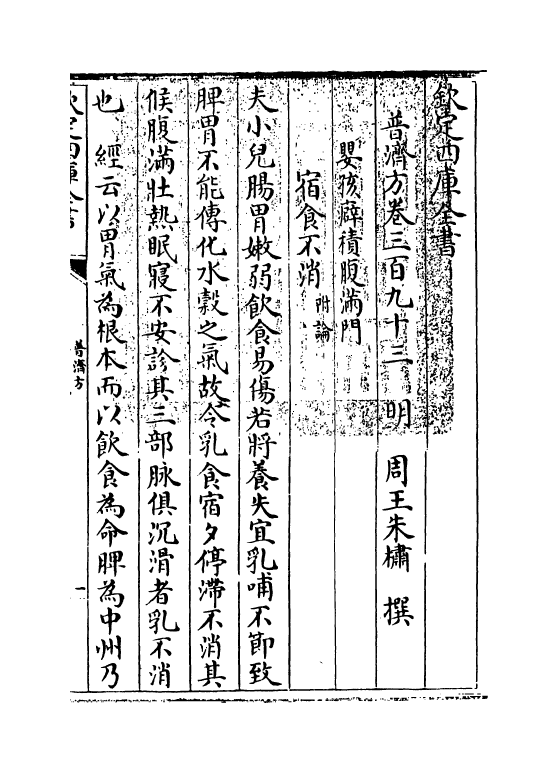 欽定四庫全書
普濟方卷三百九十三 明 周王朱橚 撰
嬰孩癖積腹滿門
宿食不消 附論
夫小兒腸胃嫩弱飲食易傷若將養失宜乳哺不節致
脾胃不能傳化水穀之氣故令乳食宿夕停滯不消其
候腹滿壯熱眠寢不安診其三部脉俱沉滑者乳不消
也經云以胃氣為根本而以飲食為命脾為中州乃
欽定四庫全書
普濟方
一